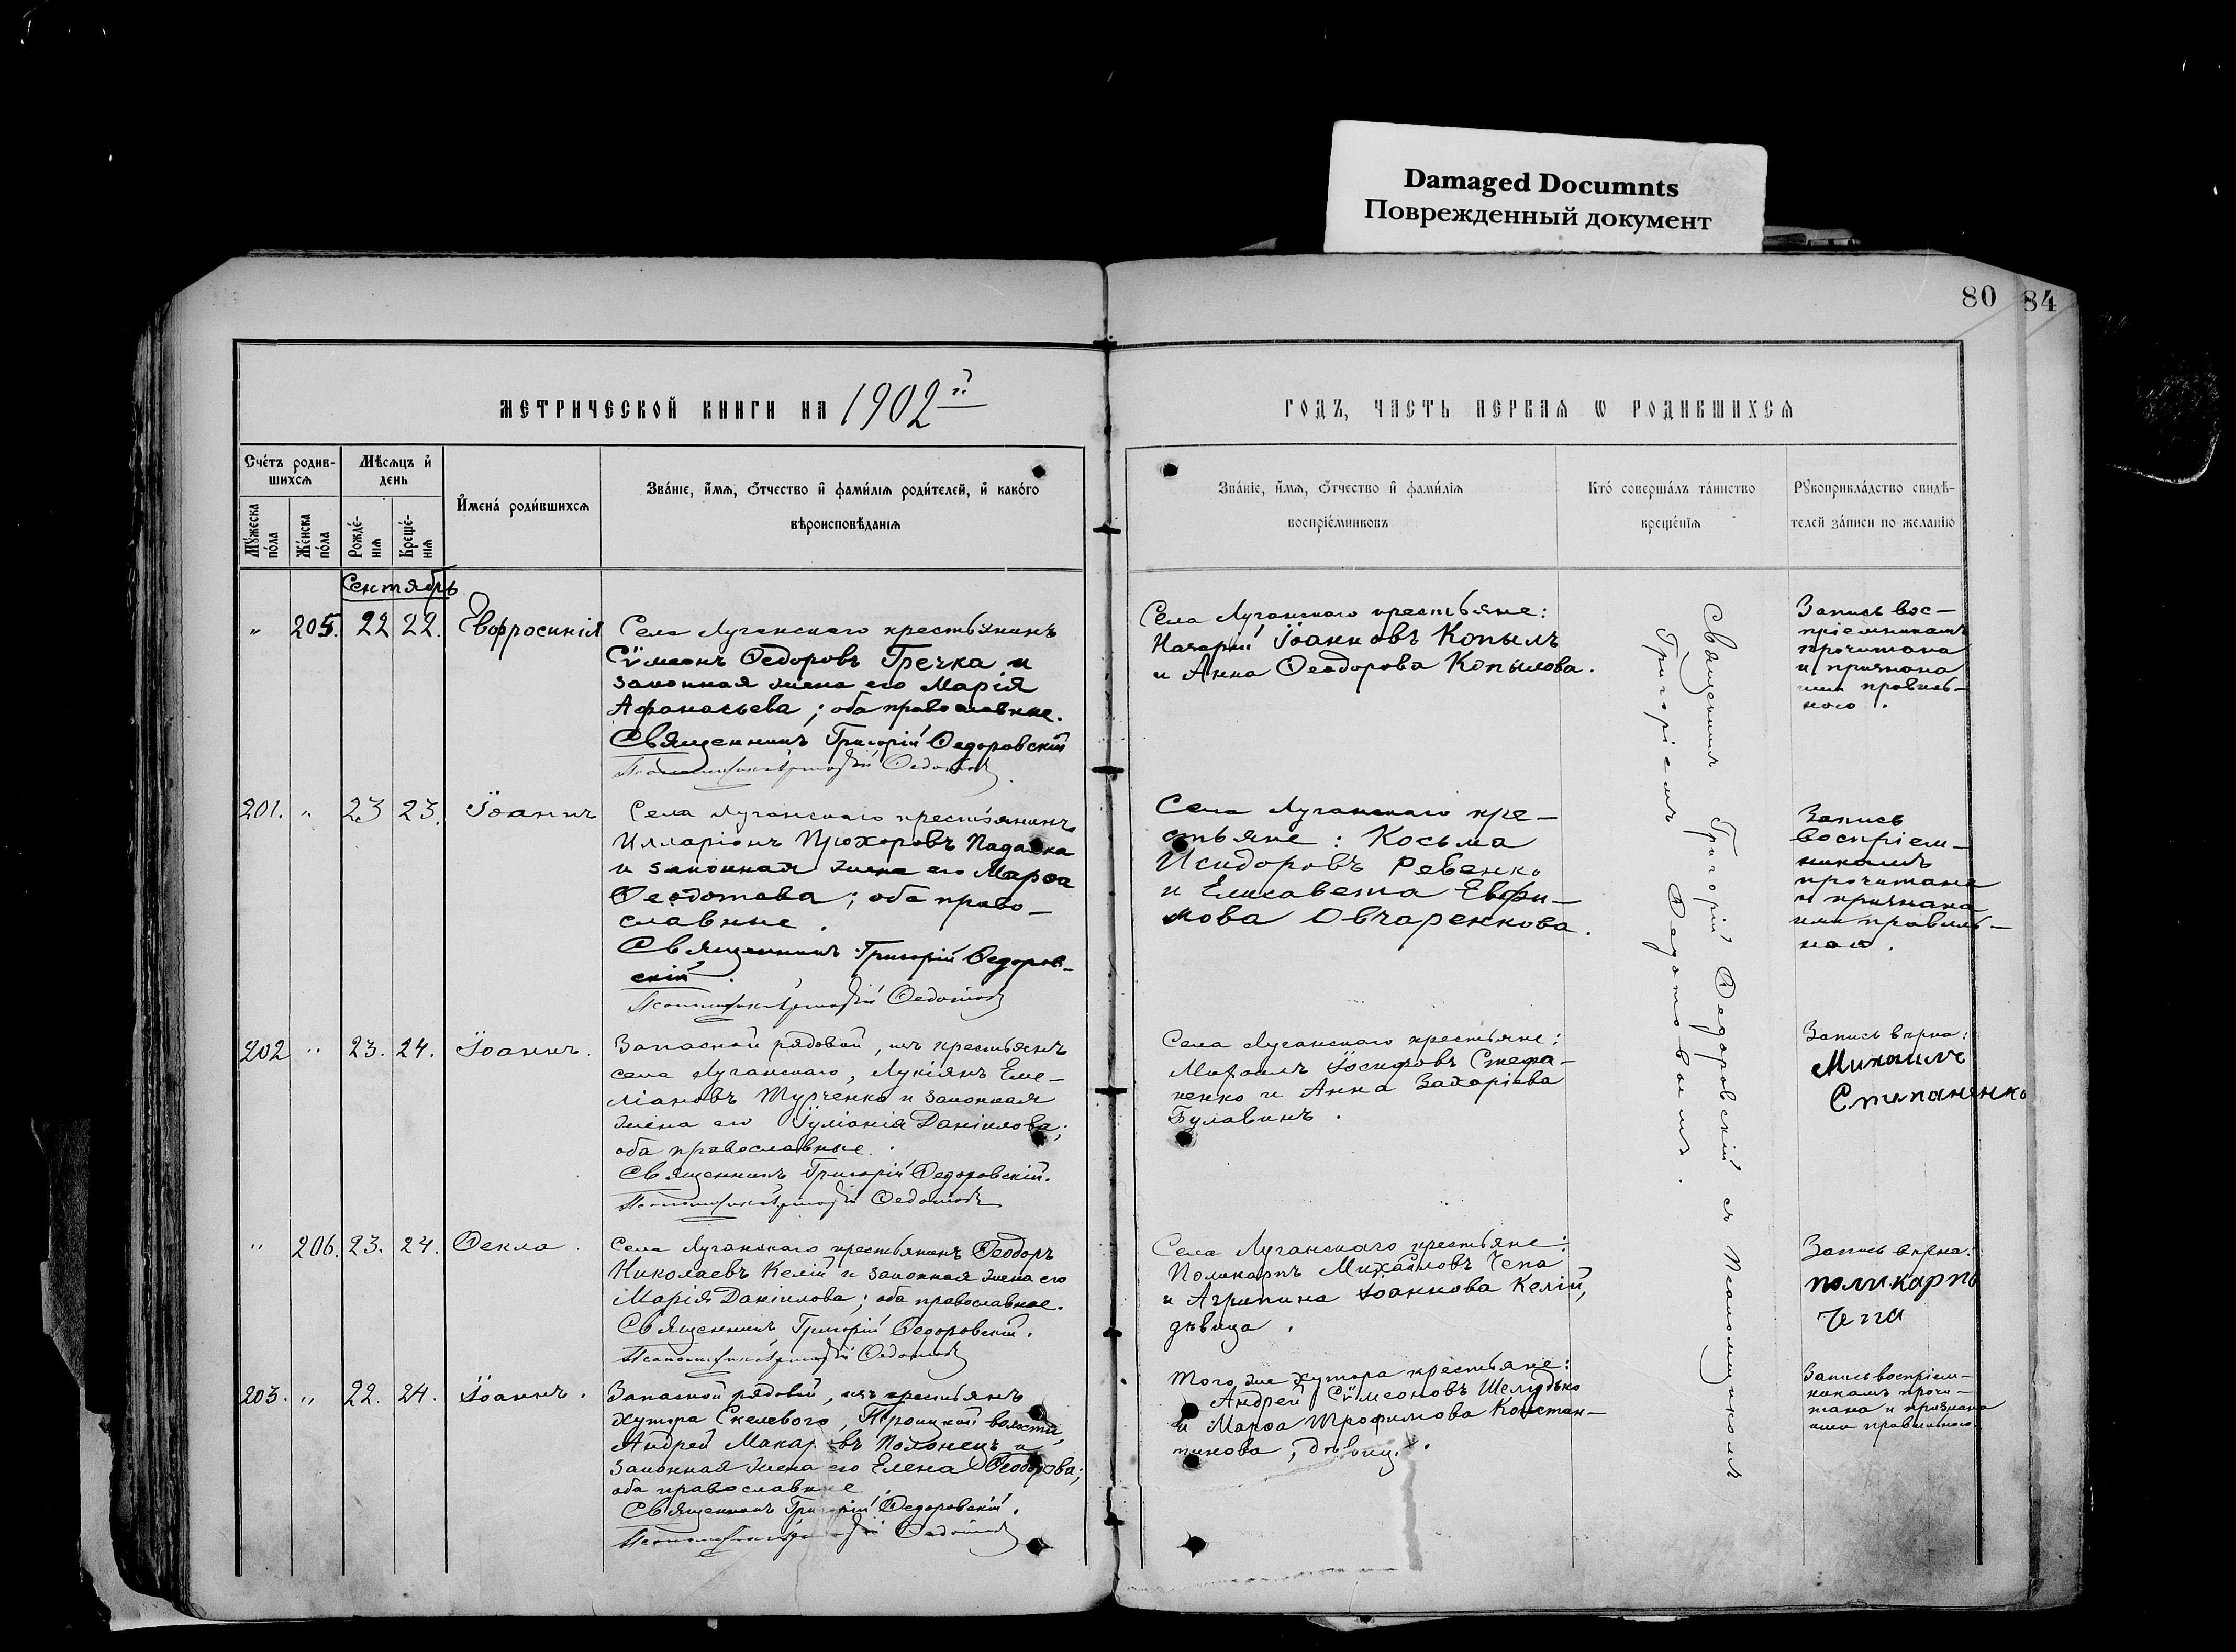 Damaged Documnts
Поврежденный документ
80 84
МЕТРИЧЕСКОЙ КНИГИ НА 1902й
ГОДЪ, ЧАСТЬ ПЕРВАЯ Ѡ РОДИВШИХСЯ
Счетъ родив-
шихся
Мужеска
пола
Женска
пола
Мѣсяцъ и
день
Рожде-
нія
Креще-
нія
Имена родившихся
Званіе, имя, отчество и фамилія родителей, и какого
вѣроисповѣданія
Званіе, имя, отчество и фамилія
воспріемниковъ
Кто совершалъ таинство
крещенія
Рукоприкладство свидѣ-
телей записи по желанію
Сентябрь
" 205. 22 22. Евфросинія
Села Луганскаго крестьянинъ
Сѵмеонъ Ѳедоровъ Гречка и
законная жена его Марія
Афанасьева; оба православные.
Священникъ Григорій Ѳедоровскій
Ѳедотовъ
Села Луганскаго крестьяне:
Назарій Іоанновъ Копылъ
и Анна Ѳеодорова Копылова.
Запись вос-
пріемникамъ
прочитана
и признана
ими правиль-
ною.
201. " 23 23. Іоаннъ
Села Луганскаго крестьянинъ
Илларіонъ Прохоровъ Падалка
и законная жена его Марѳа
Ѳеодотова; оба право-
славные.
Священникъ Григорій Ѳедоров-
скій.
Ѳедотовъ
Села Луганскаго кре-
стьяне: Косьма
Исидоровъ Ребенко
и Елисавета Евфи-
мова Овчаренкова.
Запись
воспріем-
никамъ
прочитана
и признана
ими правиль-
ною.
202 " 23. 24. Іоаннъ.
Запасной рядовой, изъ крестьянъ
села Луганскаго, Лукіянъ Еме-
ліановъ Турченко и законная
жена его Іуліанія Даніилова;
оба православные.
Священникъ Григорій Ѳедоровскій.
Ѳедотовъ
Села Луганскаго крестьяне:
Михаилъ Іосифовъ Стефа-
ненко и Анна Захаріева
Булавинъ.
Запись вѣрна:
Михаилъ
Степаненко
" 206. 23. 24. Ѳекла.
Села Луганскаго крестьянинъ Ѳеодоръ
Николаевъ Келій и законная жена его
Марія Даніилова; оба православные.
Священникъ Григорій Ѳедоровскій.
Ѳедотовъ
Села Луганскаго крестьяне:
Поликарпъ Михаиловъ Чепа
и Агрипина Іоаннова Келій,
дѣвица.
Запись вѣрна:
поликарпъ
Чепа
203. " 22. 24. Іоаннъ.
Запасной рядовой, изъ крестьянъ
хутора Скелевого, Троицкой волости,
Андрей Макаровъ Полонецъ и
законная жена его Елена Ѳеодорова;
оба православные
Священникъ Григорій Ѳедоровскій.
Ѳедотовъ
Того же хутора крестьяне:
Андрей Сѵмеоновъ Шелудько
и Марѳа Трофимова Констан-
тинова, дѣвица.
Запись воспріем-
никамъ прочи-
тана и признана
ими правильною.
Священникъ Григорій Ѳедоровскій съ псаломщикомъ
Григоріемъ Ѳедотовымъ.